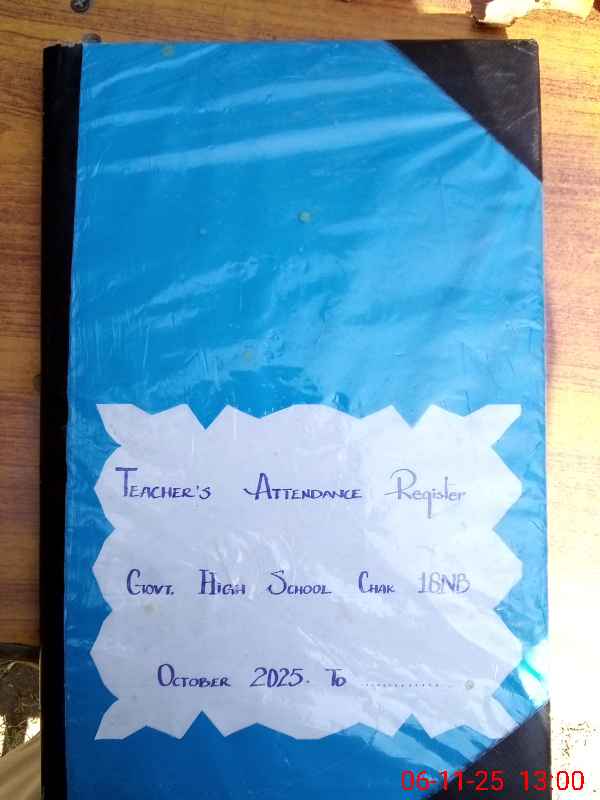 TEACHER'S ATTENDANCE Register
GOVT. HIGH SCHOOL CHAK 18NB
OCTOBER 2025. TO ..............
06-11-25 13:00